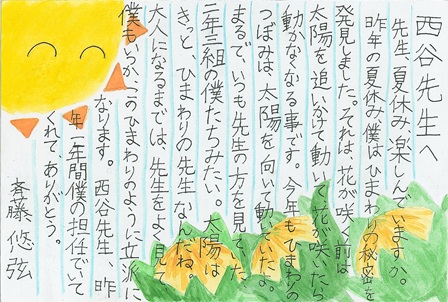 西谷先生へ
先生、夏休み楽しんでいますか。
昨年の夏休み、僕はひまわりの秘密を
発見しました。それは、花が咲く前は
太陽を追いかけて動いて、花が咲いたら
動かなくなる事です。今年もひまわりの
つぼみは、太陽を向いて動いたよ。
まるで、いつも先生の方を見ていた、
二年三組の僕たちみたい。太陽は
きっと、ひまわりの先生なんだね。
大人になるまでは、先生をよく見て
僕もいつか、このひまわりのように立派に
なります。 西谷先生、昨
年一年間僕の担任でいて
くれて、ありがとう。
斉藤悠弦